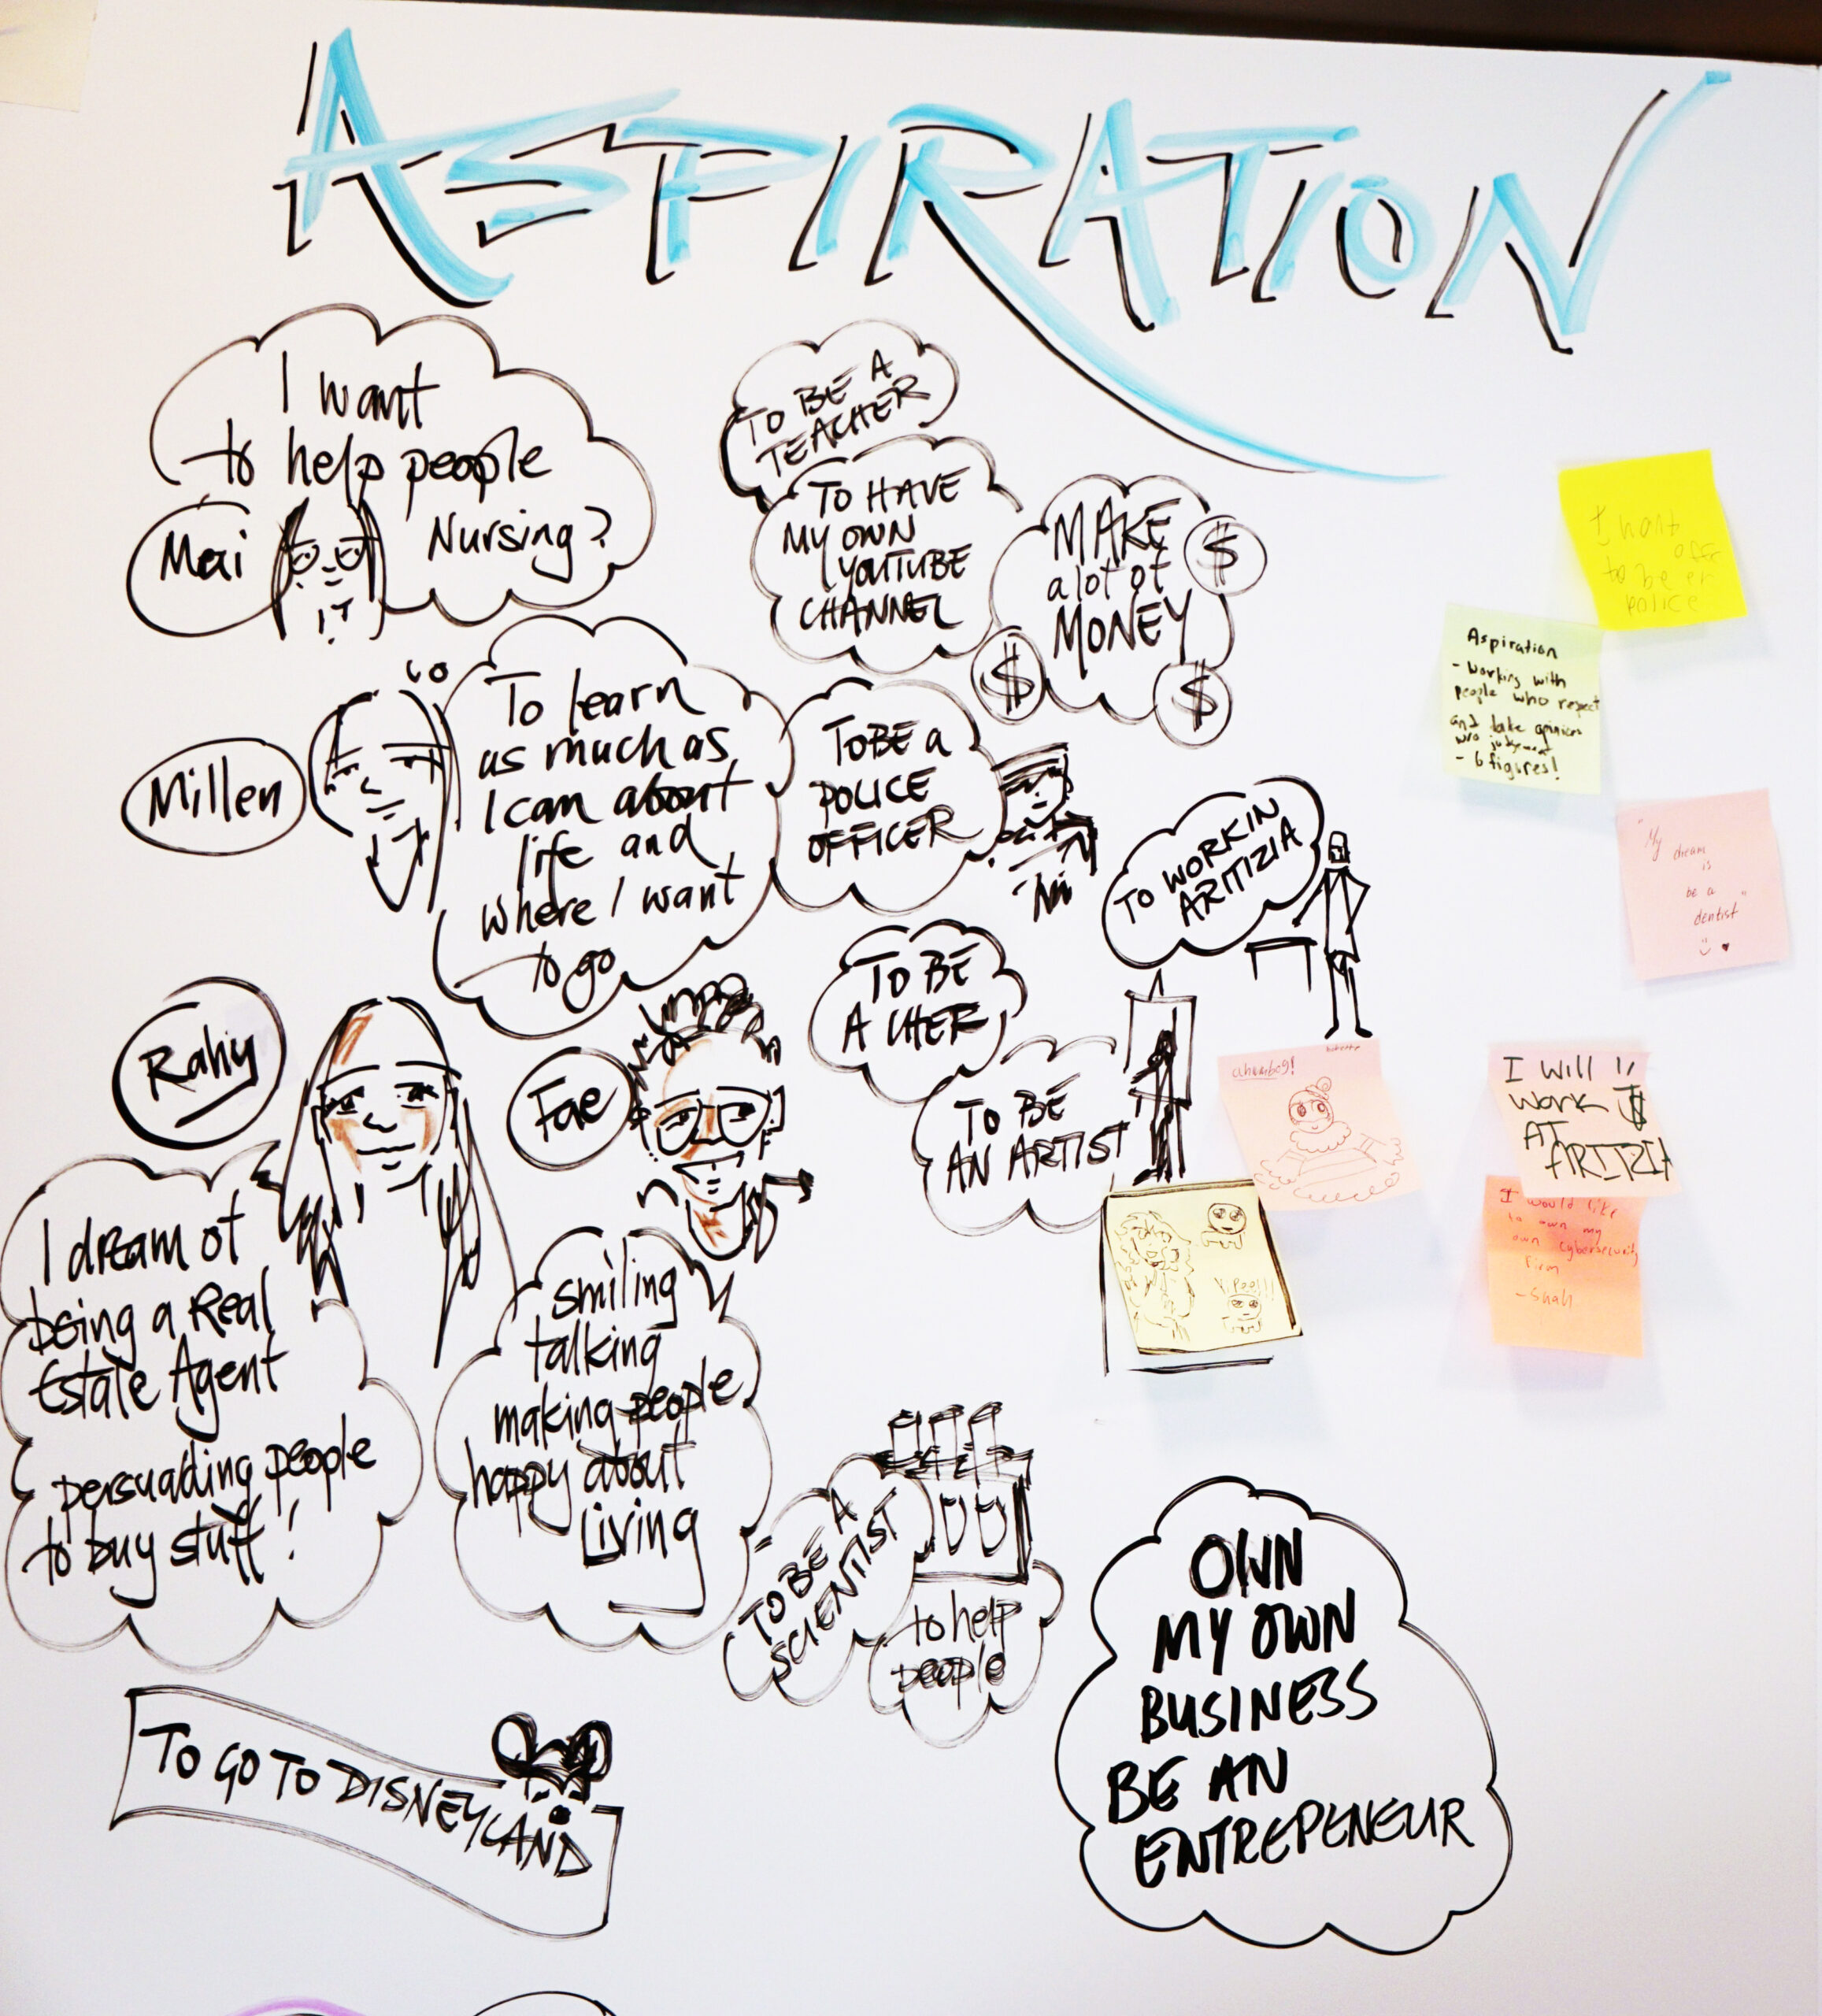 ASPIRATION
I want
to help people
Nursing?
Mai
TO BE A
TEACHER
TO HAVE
MY OWN
YOUTUBE
CHANNEL
MAKE
a lot of
MONEY
$
$
$
Millen
To learn
as much as
I can about
life and
where I want
to go
TO BE a
POLICE
OFFICER
TO WORK IN
ARITIZIA
TO BE
A CHEF
TO BE
AN ARTIST
Rahy
I dream of
being a Real
Estate Agent
persuading people
to buy stuff!
Fae
smiling
talking
making people
happy about
Living
TO BE A
SCIENTIST
to help
people
TO GO TO DISNEYLAND
OWN
MY OWN
BUSINESS
BE AN
ENTREPENEUR
I want
to be
police
Aspiration
- Working with
people who respect
and take opinions
w/o judgement
- 6 figures!
"My
dream
is
be a
dentist"
I will
work
AT
ARITIZIA
I would like
to own my
own cybersecurity
firm
Yipee!!!